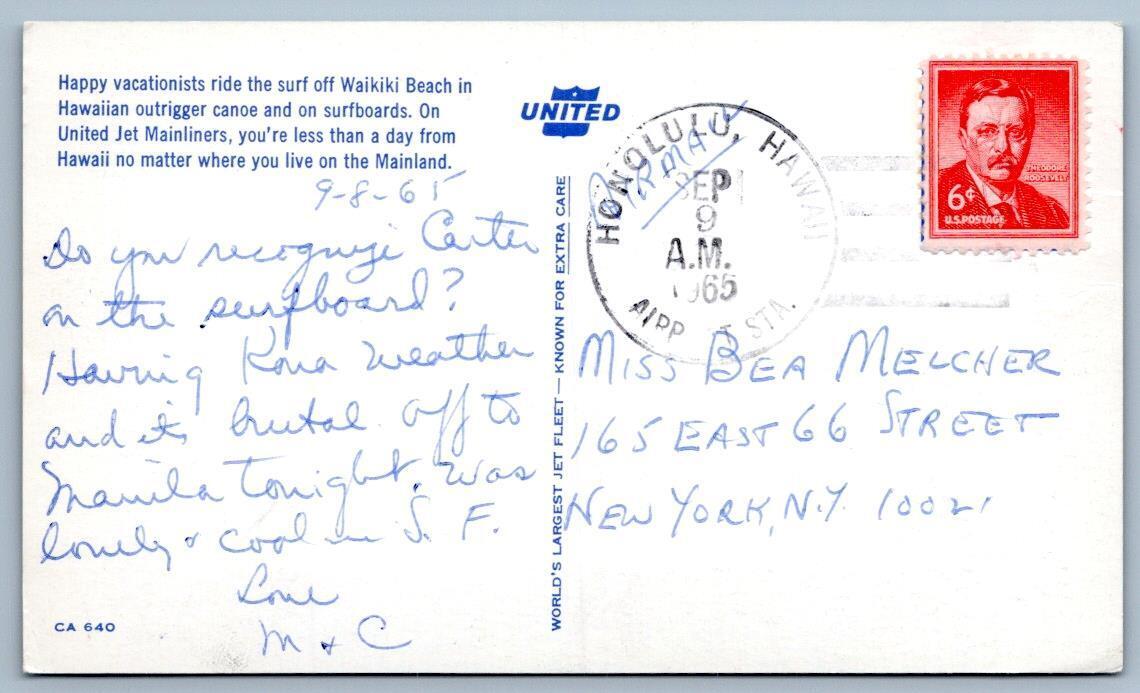 Happy vacationists ride the surf off Waikiki Beach in
Hawaiian outrigger canoe and on surfboards. On
United Jet Mainliners, you're less than a day from
Hawaii no matter where you live on the Mainland.
9-8-65
Do you recognize Carter
on the surfboard?
Having Kona weather
and it's brutal. Off to
Manila tonight. Was
lovely & cool in S. F.
Love
M & C
CA 640
UNITED
WORLD'S LARGEST JET FLEET — KNOWN FOR EXTRA CARE
AIRMAIL
HONOLULU, HAWAII
SEP
9
A.M.
1965
AIRPORT STA.
THEODORE
ROOSEVELT
6¢
U.S. POSTAGE
MISS BEA MELCHER
165 EAST 66 STREET
NEW YORK, N.Y. 10021